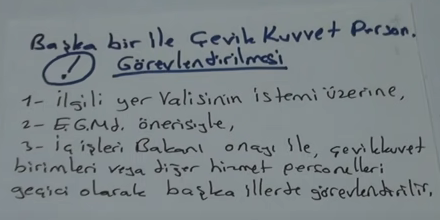 Başka bir İle Çevik Kuvvet Person.
! Görevlendirilmesi
1- İlgili yer Valisinin istemi üzerine,
2- E.G.Md. önerisiyle,
3- İç işleri Bakanı onayı ile, çevikkuvvet
birimleri veya diğer hizmet personelleri
geçici olarak başka illerde görevlendirilir.